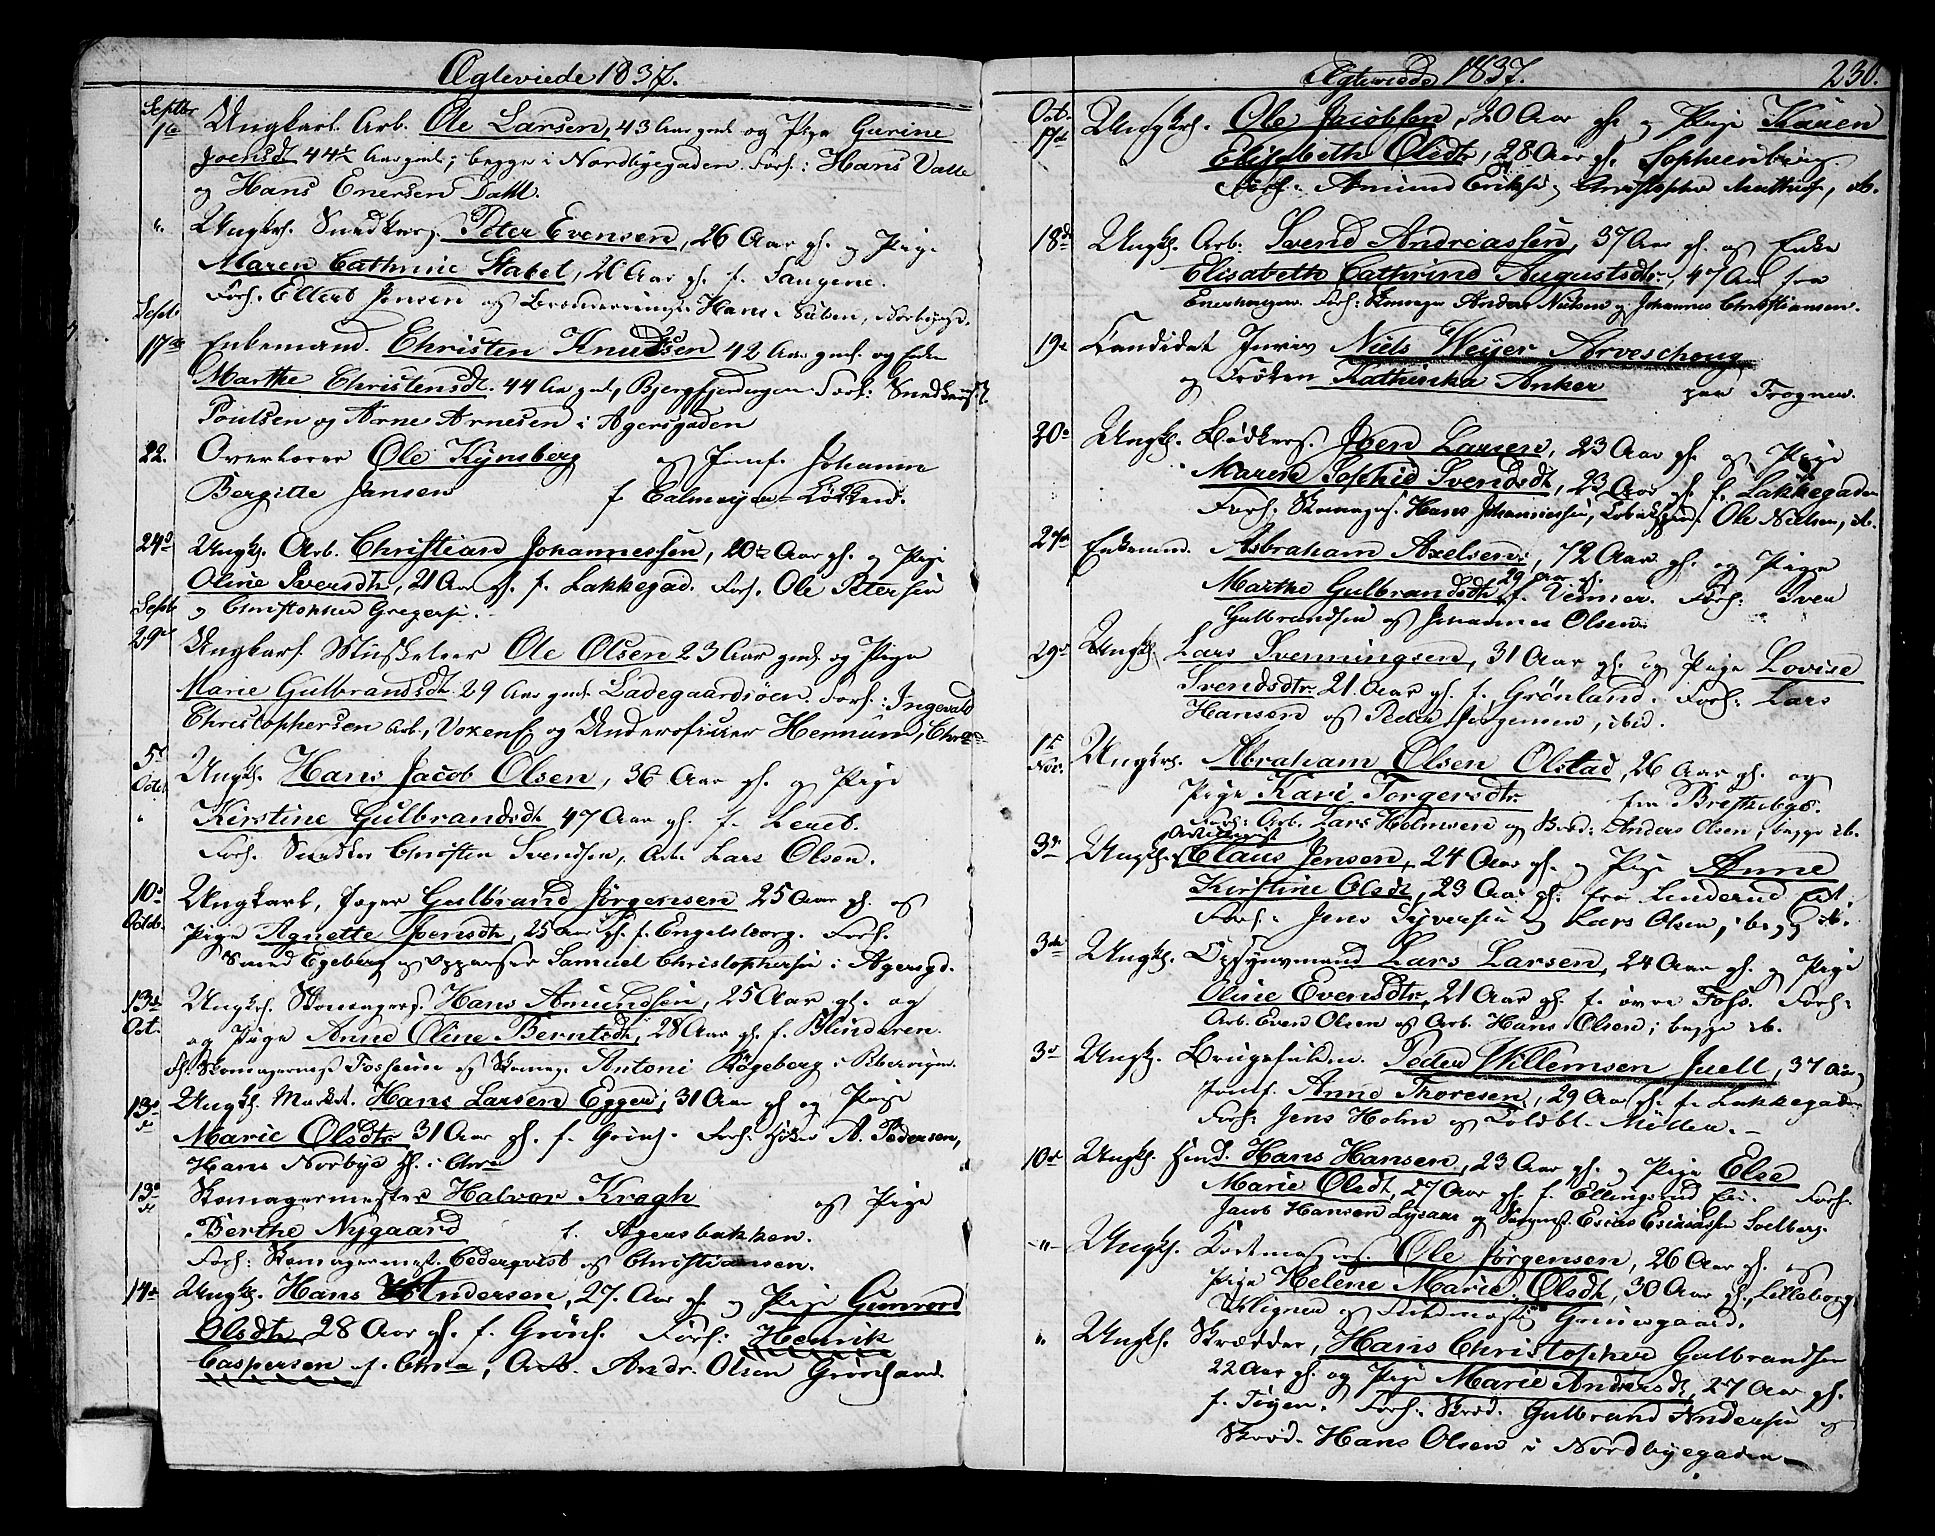 Ægteviede 1837.
Septbr
1te Ungkarl. Arb. Ole Larsen, 43 Aar gml. og Pige Gurine
Joensdt. 44½ Aar gml; begge i Nordbyegaden. Forl: Hans Valle
og Hans Enersen Dahl.
" Ungk. Snedkers. Peter Evensen, 26 Aar gl. og Pige
Maren Cathrine Stabel, 20 Aar gl. f. Saugene.
Forl. Ellert Jensen og Hans Nilsen, Norbyegd.
Septb
17de Enkemand. Christen Knudsen 42 Aar gml. og Enke
Marthe Christensdt. 44 Aar gml, Bjergfjerdingen. Forl: Snedkerms.
Poulsen og Arne Arnesen i Agersgaden
22. Overlærer Ole Kynsberg og Jomf. Johanne
Bergitte Jansen f. Calmeyer-Løkken.
24d Ungk. Arb. Christian Johannessen, 20½ Aar gl. og Pige
Oline Iversdt., 21 Aar gl. f. Lakkegad. Forl. Ole Petersen
og Christopher Gregersen.
Septb
29de Ungkarl. Musketeer Ole Olsen 23 Aar gml. og Pige
Marie Gulbrandsdt. 29 Aar gml. Ladegaardsøen. Forl: Ingevald
Christophersen Arb., Voxenf. og Underofficeer Hennum, Chra
5t Octb. Ungk. Hans Jacob Olsen, 36 Aar gl. og Pige
Kirstine Gulbrandsdt. 47 Aar gl. f.
Forl. Christen Svendsen, Arb. Lars Olsen.
10d Octob. Ungkarl, Jæger Gulbrand Jörgensen 25 Aar gl. og
Pige Agnette Joensdt., 25 Aar gl. f. Engelsborg. Forl.
Smed Egeberg og Samuel Christophersen i Agersgd.
13de Oct. Ungk. Skomagers. Hans Amundsen, 25 Aar gl. og
og Pige Anne Oline Berntsdt., 28 Aar gl. f. Blinderen.
fl. Skomagermest. Fossum og Skomag. Antoni Røgeberg i Pibervigen.
13d Ungk. Hans Larsen Egger, 31 Aar gl og Pige
Marie Olsdtr. 31 Aar gl. f. Grönl. Forl: A. Pedersen,
Hans Norbye gl. i Chra
13d Skomagermester Halvor Kragh og Pige
Berthe Nygaard f. Agersbakken.
Forl: Skomagermest. Cederqvist og Christiansen.
14d Ungk. Hans Andersen, 27. Aar gl. og Pige Gunnord
Olsdt., 28 Aar gl. f. Grönl. Forl: Henrik
Caspersen f. Chra, Arb. Andr. Olsen Grönland.
Ægteviede 1837. 230.
Oct. 17d Ungk. Ole Jacobsen, 20 Aar gl. og Pige Karen
Elisabeth Olsdt., 28 Aar gl. Sophienberg.
Forl: Amund Eriksen og Christopher Mathies, ib.
18d Ungk. Arb. Svend Andreassen, 37 Aar gl. og Enke
Elisabeth Cathrine Augustsdtr., 47 Aar fra
Enerhaugen. Forl: Skomager Anders Nielsen og Johannes Christiansen.
19d Candidat Juris Niels Weyer Arveschoug
og Frøken Kathinka Anker paa Frogner.
20d Ungk. Bødkers. Joen Larsen, 23 Aar gl. og Pige
Maren Sophie Svendsdt., 23 Aar gl. f. Lakkegaden
Forl: Skomagers. Hans Johannessen, Ole Nielsen, ib.
27de Enkem. Abraham Axelsen, 72 Aar gl. og Pige
29 Aar gl.
Marthe Gulbrandsdt. f. Forl: Iver
Gulbrandsen og Johannes Olsen.
29d Ungk. Lars Svenningsen, 31 Aar gl. og Pige Lovise
Svendsdtr. 21. Aar gl. f. Grönland. Forl: Lars
Hansen og Peder Jörgensen, ibid.
1t Nov. Ungk. Abraham Olsen Olstad, 26 Aar gl. og
Pige Kari Torgersdtr. fra
Forl: Arb. Lars Holmsen og Anders Olsen, begge ib.
3de Ungk. Claus Jensen, 24 Aar gl. og Pige Anne
Kirstine Olsdt., 23 Aar gl. fra Linderud Eit.
Forl: Jens Syversen og Lars Olsen, begge ib.
3de Ungk. Opsynsmand Lars Larsen, 24 Aar gl. og Pige
Oline Evensdtr., 21 Aar gl. f. øvre Foss. Forl:
Arb. Even Olsen og Arb. Hans Olsen, begge ib.
3d Ungk. Peder Willemsen Juell, 37 Aar,
Jomf. Anne Thoresen, 29 Aar gl. f. Lakkegaden
Forl: Jens Holm og Toldbt. Møller.
10d Ungk. Hans Hansen, 23 Aar gl. og Pige Else
Marie Olsdt., 27 Aar gl. f. Ellingsrud Eie. Forl:
Jacob Hansen og Esaias Esaiassen Solberg.
-"- Ungk. Ole Jörgensen, 26 Aar gl. og
Pige Helene Marie Olsdt., 30 Aar gl., Lilleborg
og Griniegaard.
" Ungk. Skrædder, Hans Christopher Gulbrandsen
22 Aar gl. og Pige Marie Andersdt., 27 Aar gl.
f. Tøyen. Forl: Skræd. Gulbrand Andersen og
Skræd. Hans Olsen i Nordbyegaden